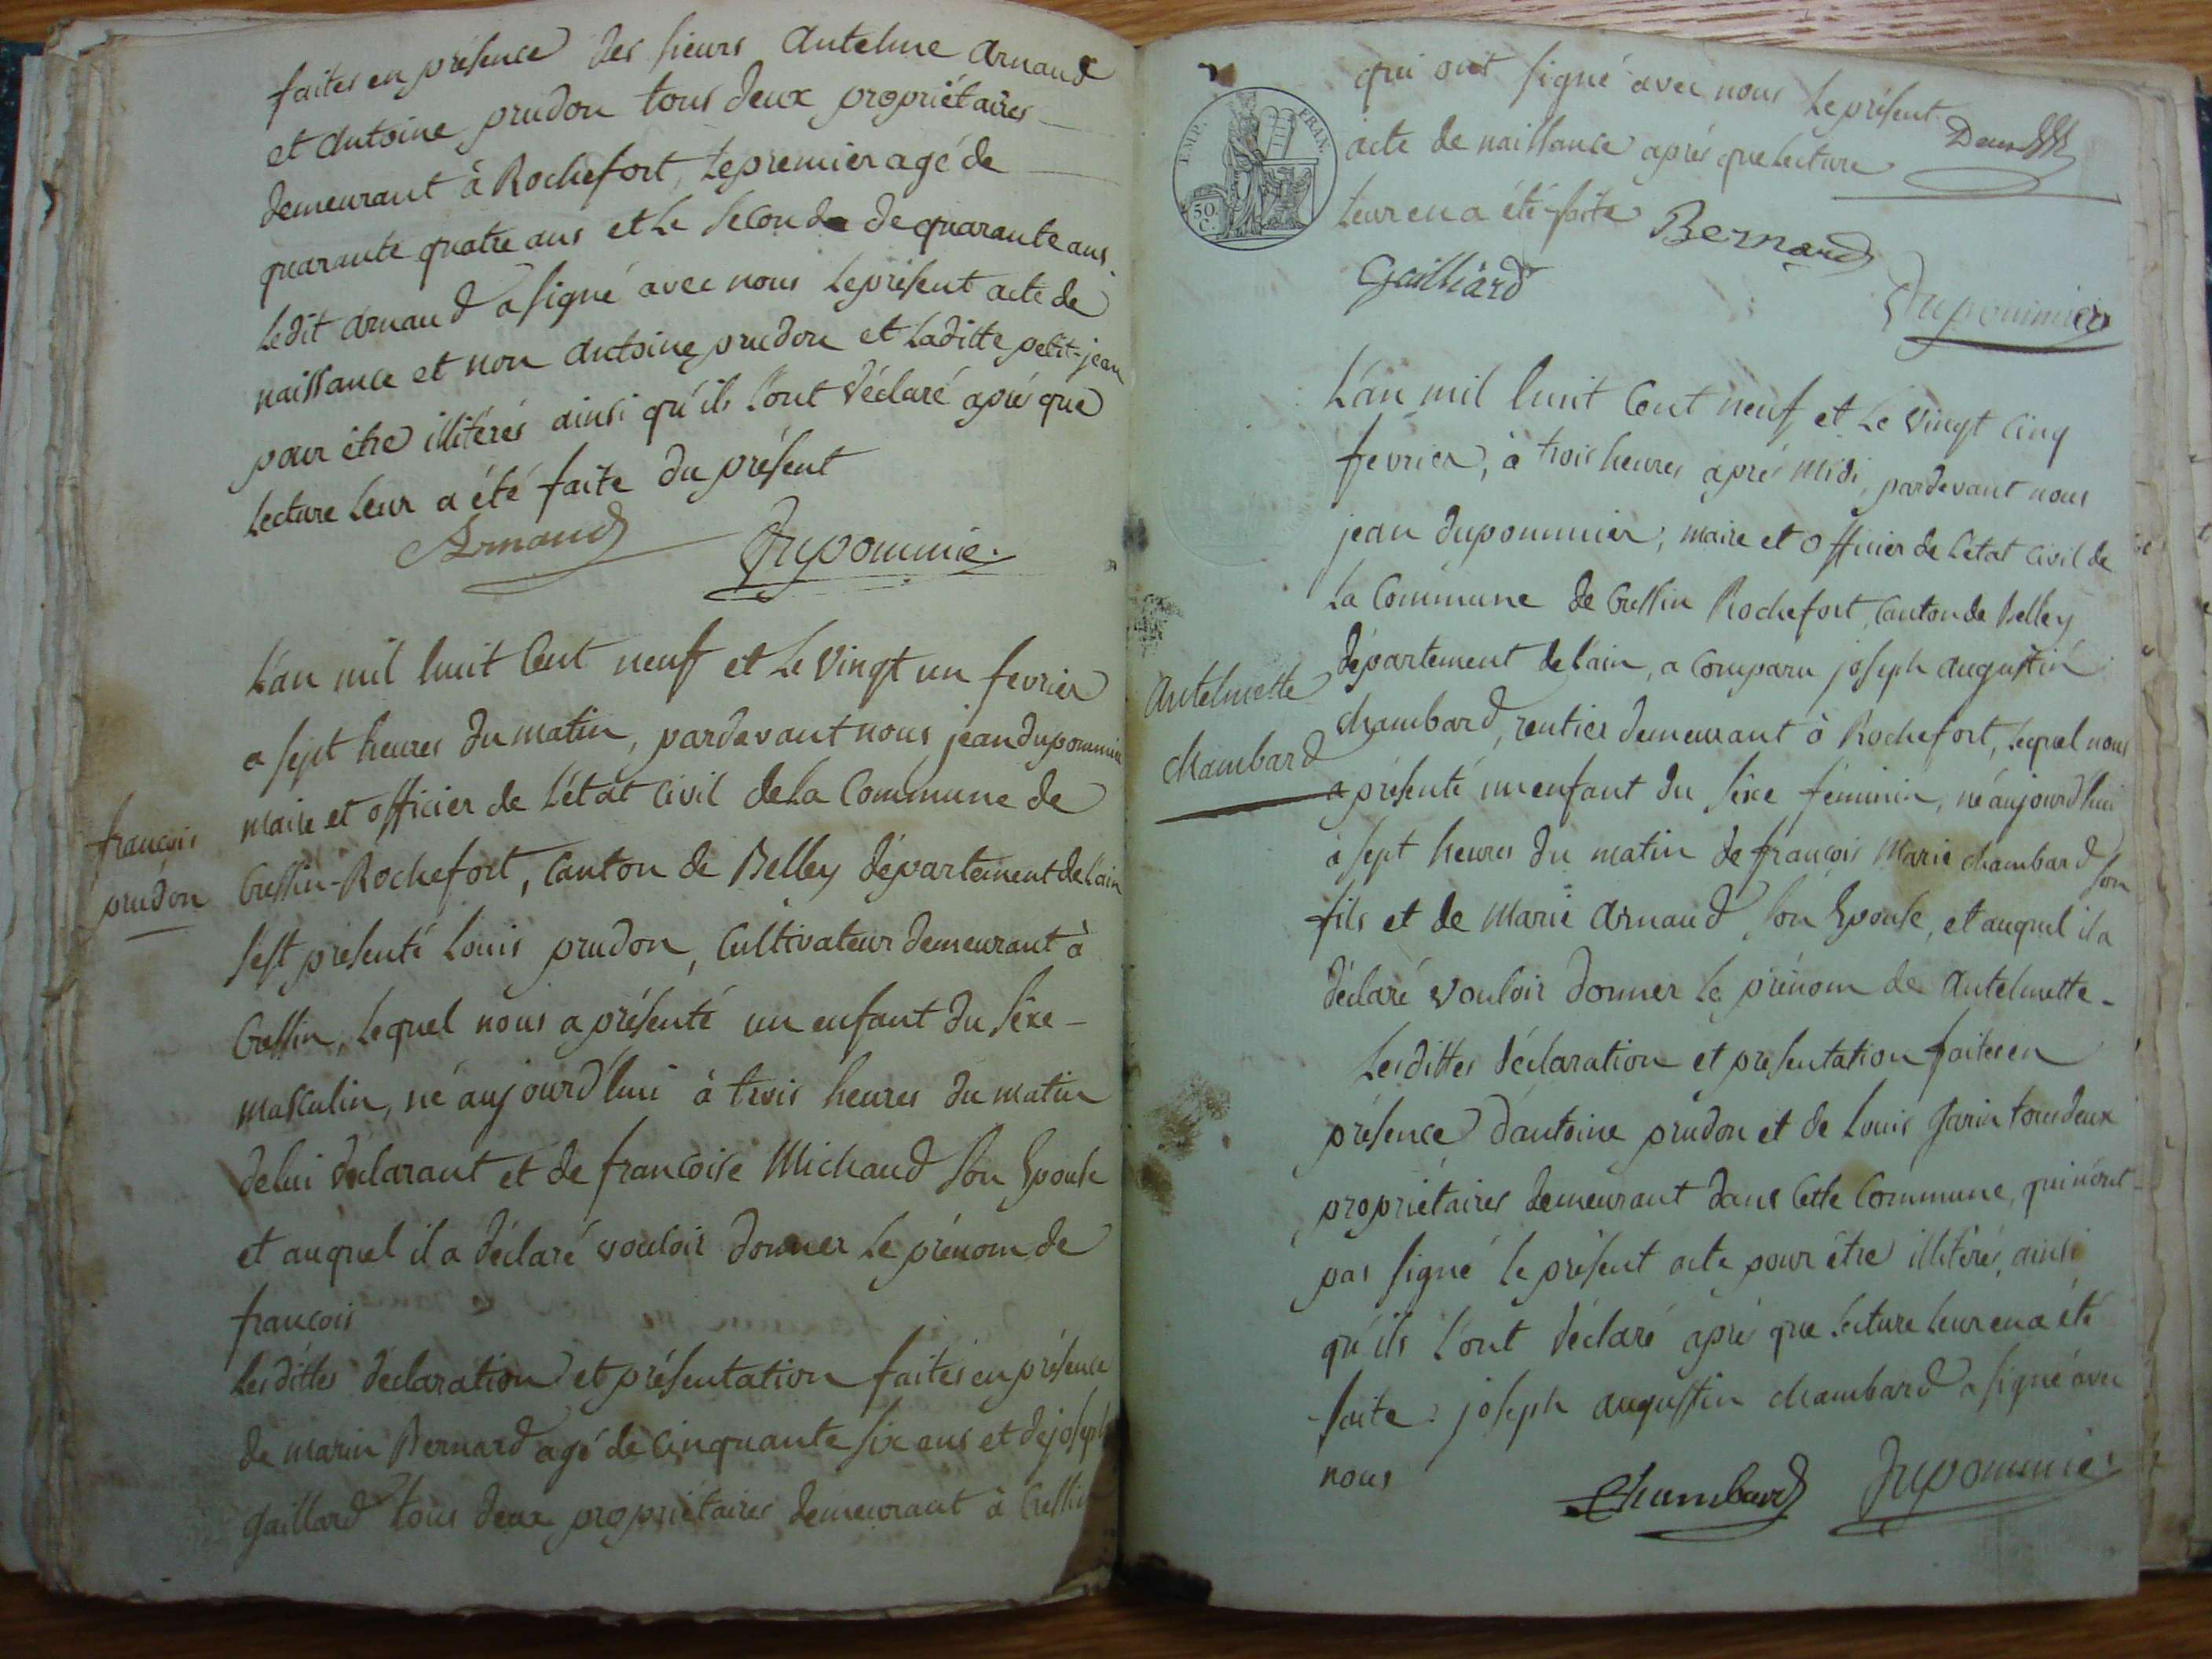 faites en présence des sieurs Antelme Arnaud
et Antoine prudon tous deux propriétaires
demeurant à Rochefort, le premier agé de
quarante quatre ans et le second de quarante ans.
Ledit Arnaud a signé avec nous le présent acte de
naissance et non Antoine prudon et Laditte petit-jean
pour être illitérés ainsi qu'ils l'ont déclaré après que
lecture leur a été faite du présent
Arnaud Dupommier
L'an mil huit Cent neuf et le vingt un fevrier
a sept heures du matin, pardevant nous jean dupommier
maire et officier de l'état Civil de la Commune de
Cressin-Rochefort, Canton de Belley département de l'ain
s'est présenté Louis prudon, Cultivateur demeurant à
Cressin, lequel nous a présenté un enfant du sèxe
masculin, né aujourd'hui à trois heures du matin
de lui déclarant et de françoise Michaud son Epouse
et auquel il a déclaré vouloir donner le prénom de
françois
Lesdittes déclaration et présentation faites en présence
de marin Bernard agé de cinquante six ans et de joseph
gaillard tous deux propriétaires demeurant à Cressin
françois
prudon
EMP. FRAN.
50
C.
qui ont signé avec nous le présent
acte de naissance après que lecture
leur en a été faite Bernard
Gailliard
Dupommier
L'an mil huit Cent neuf et le vingt cinq
fevrier, à trois heures après midi, pardevant nous
jean dupommier, maire et officier de l'état civil de
la Commune de Cressin Rochefort, Canton de Belley
département de l'ain, a comparu joseph augustin
chambard, rentier demeurant à Rochefort, lequel nous
a présenté un enfant du sèxe féminin, né aujourd'hui
à sept heures du matin de françois Marie chambard son
fils et de Marie Arnaud son Epouse, et auquel il a
déclaré vouloir donner le prénom de Antelmette.
Lesdittes déclaration et presentation faites en
présence d'antoine prudon et de Louis garin tous deux
propriétaires demeurant dans Cette Commune, qui n'ont
pas signé le présent acte pour être illitérés, ainsi
qu'ils l'ont déclaré après que lecture leur en a été
faite. joseph augustin chambard a signé avec
nous
Chambard Dupommier
Antelmette
chambard